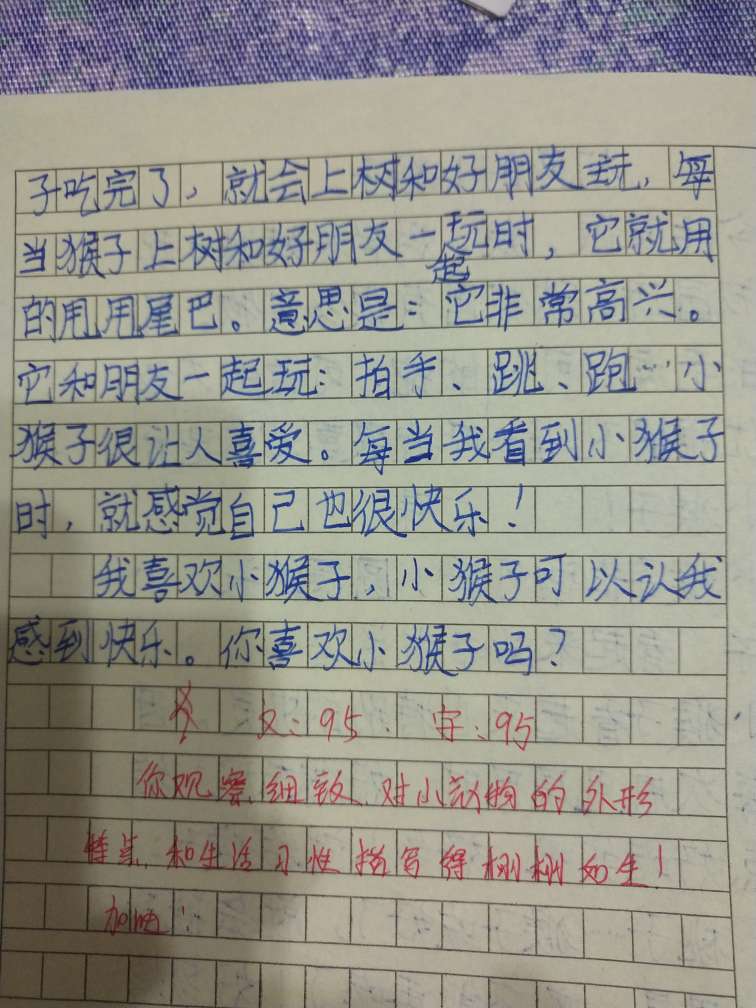 子吃完了，就会上树和好朋友玩，每
当猴子上树和好朋友一起玩时，它就用
的甩甩尾巴。意思是：它非常高兴。
它和朋友一起玩：拍手、跳、跑…小
猴子很让人喜爱。每当我看到小猴子
时，就感觉自己也很快乐！
我喜欢小猴子，小猴子可以认我
感到快乐。你喜欢小猴子吗？
文：95 字：95
你观察细致，对小动物的外形
特点和生活习性描写得栩栩如生！
加油！